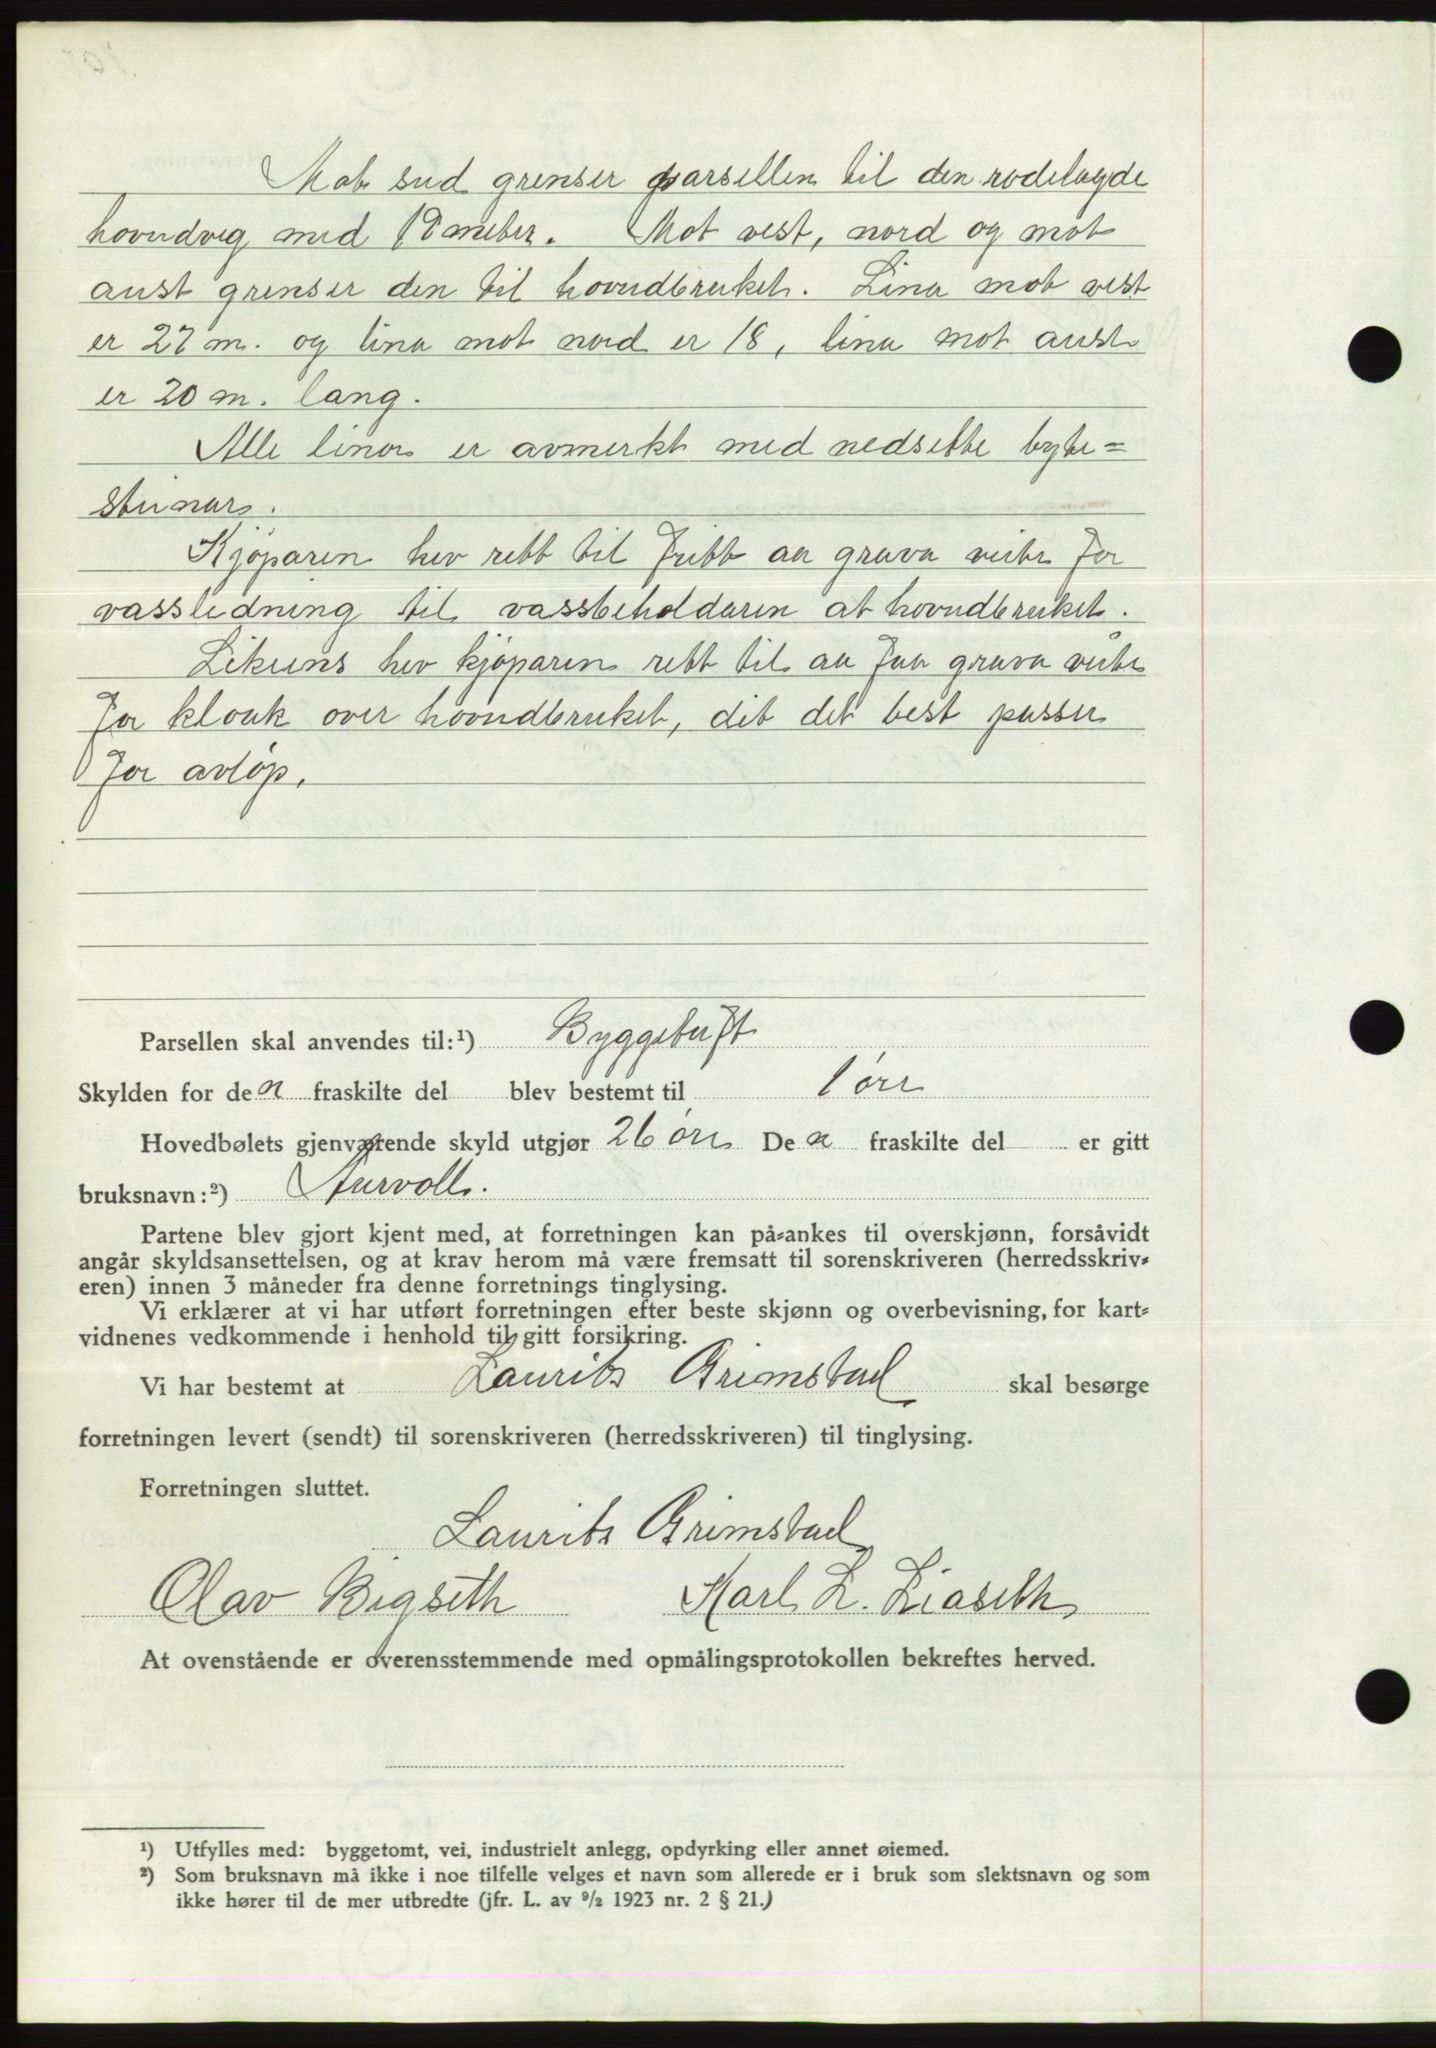 Mot sud grenser parsellen til den rodelagde
hovudveg med 18 meter. Mot vest, nord og mot
aust grenser den til hovudbruket. Lina mot vest
er 22 m. og lina mot nord er 18, lina mot aust
er 20 m. lang.
Alle linor er avmerkt med nedsette byte=
steinar.
Kjøparen hev rett til fritt aa grava veite for
vassledning til vassbeholdaren at hovudbruket.
Likeins hev kjøparen rett til aa faa grava veite
for kloak over hovudbruket, dit det best passer
for avløp.
Parsellen skal anvendes til:¹) Byggetuft
Skylden for den fraskilte del blev bestemt til 1 øre
Hovedbølets gjenværende skyld utgjør 26 øre Den fraskilte del er gitt
bruksnavn:²) Aurvoll.
Partene blev gjort kjent med, at forretningen kan på-ankes til overskjønn, forsåvidt
angår skyldsansettelsen, og at krav herom må være fremsatt til sorenskriveren (herredsskriv-
eren) innen 3 måneder fra denne forretnings tinglysing.
Vi erklærer at vi har utført forretningen efter beste skjønn og overbevisning, for kart-
vidnenes vedkommende i henhold til gitt forsikring.
Vi har bestemt at Laurits Grimstad skal besørge
forretningen levert (sendt) til sorenskriveren (herredsskriveren) til tinglysing.
Forretningen sluttet.
Laurits Grimstad
Olav Bigseth Karl L. Liaseth
At ovenstående er overensstemmende med opmålingsprotokollen bekreftes herved.
¹) Utfylles med: byggetomt, vei, industrielt anlegg, opdyrking eller annet øiemed.
²) Som bruksnavn må ikke i noe tilfelle velges et navn som allerede er i bruk som slektsnavn og som
ikke hører til de mer utbredte (jfr. L. av ⁹/₂ 1923 nr. 2 § 21.)